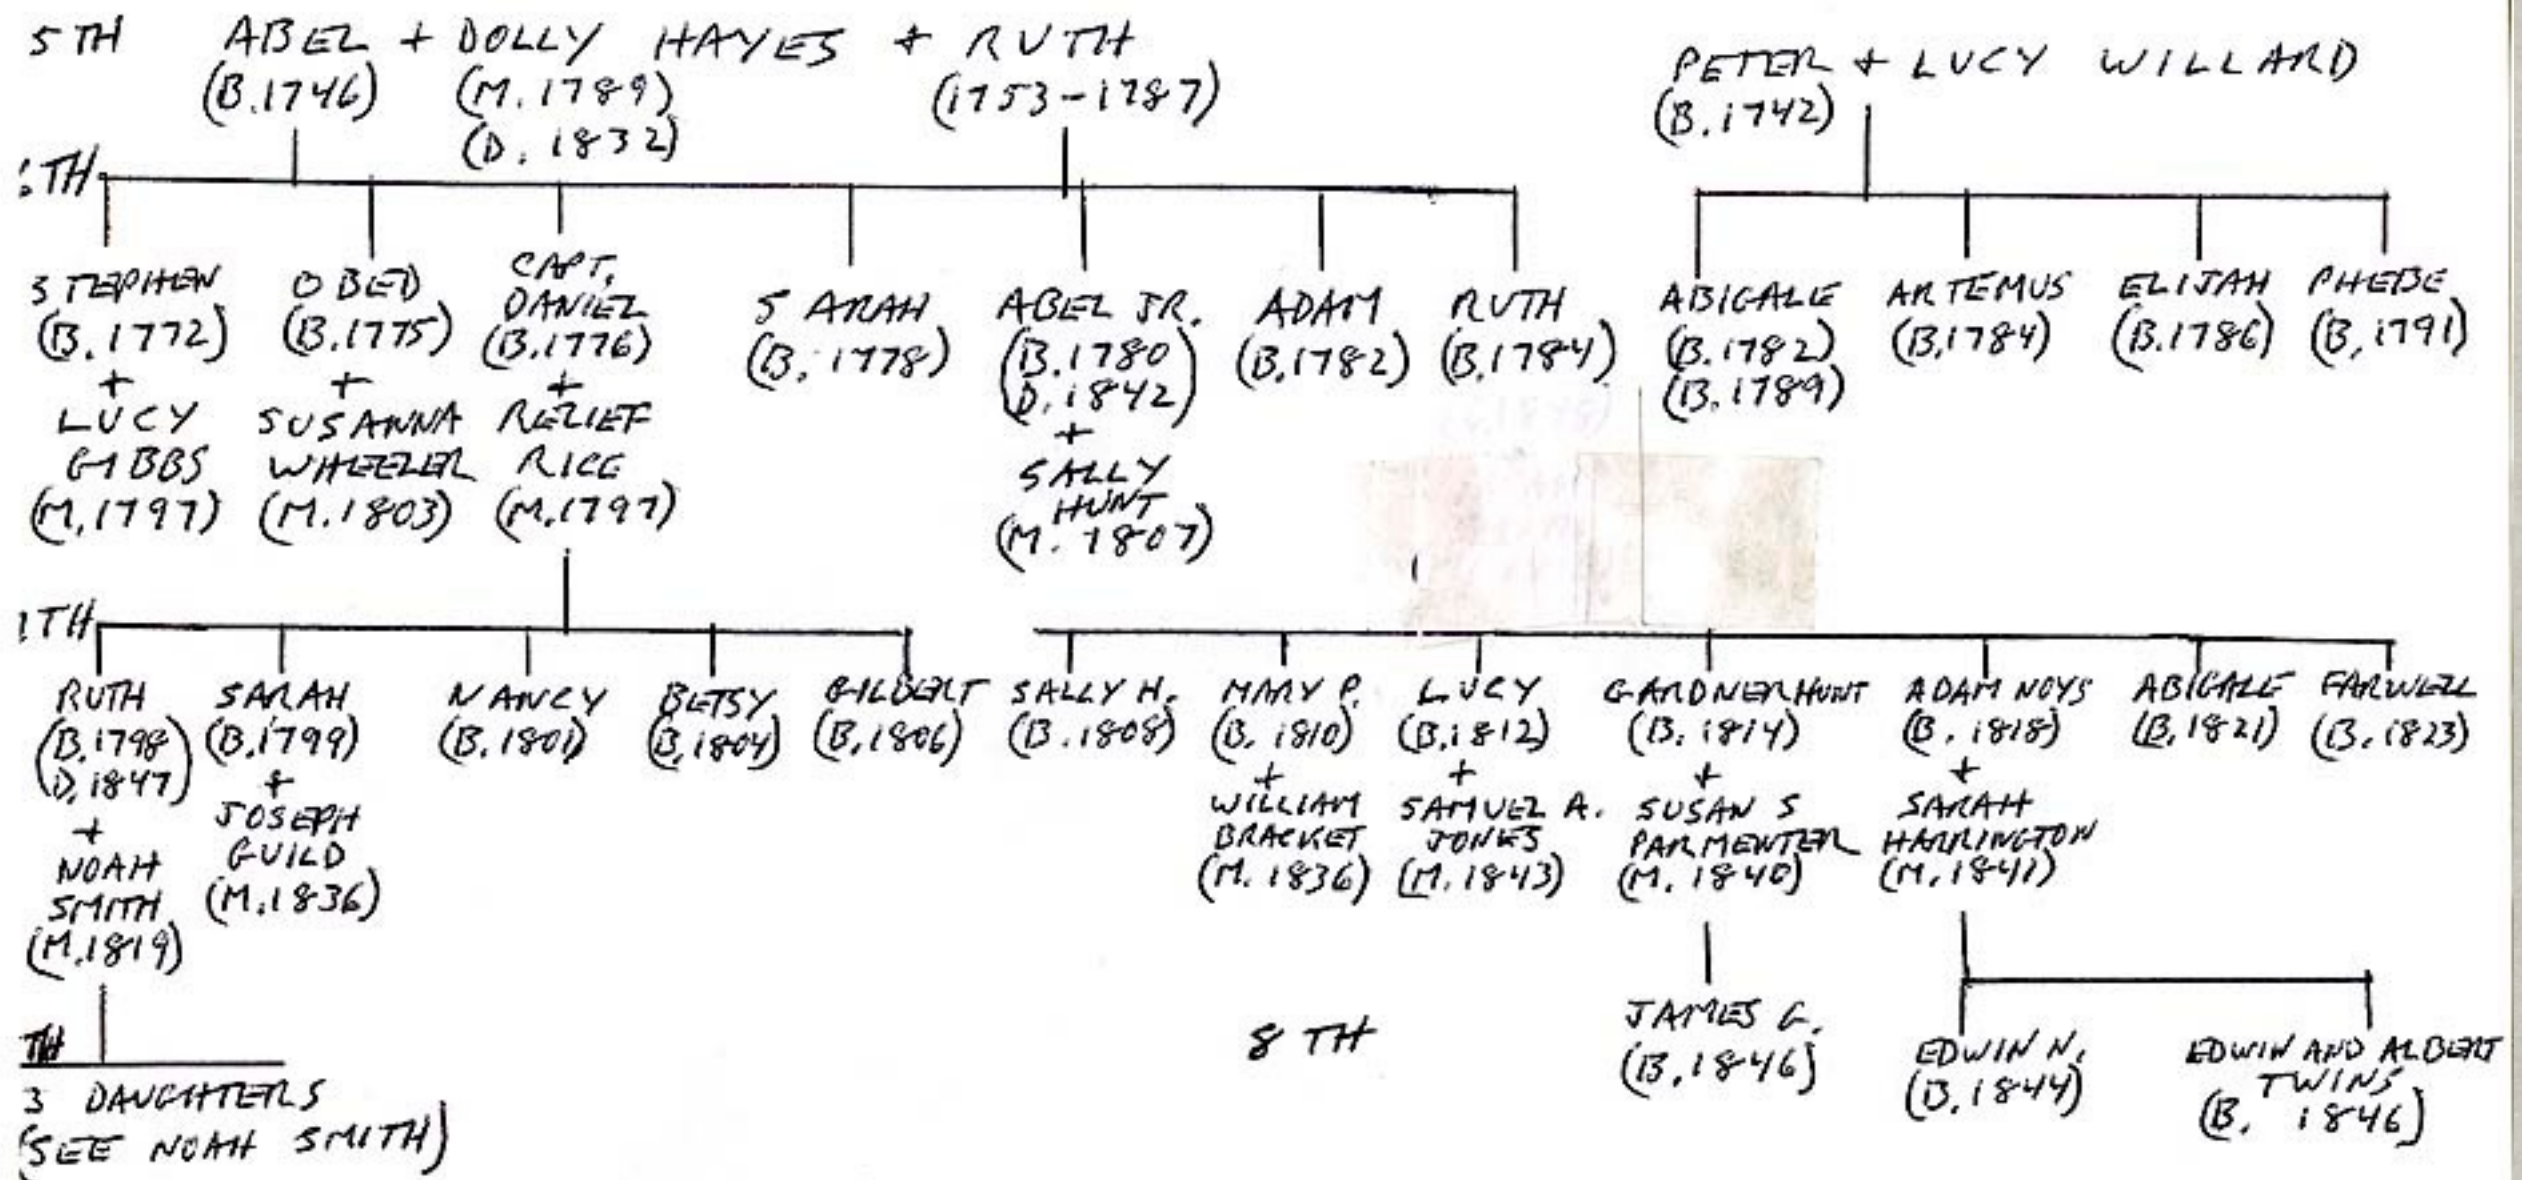 5TH ABEL + DOLLY HAYES + RUTH
(B.1746) (M.1789) (1753-1787)
(D. 1832)
PETER + LUCY WILLARD
(B.1742)
TH
STEPHEN
(B.1772)
+
LUCY
GIBBS
(M.1797)
OBED
(B.1775)
+
SUSANNA
WHEELER
(M.1803)
CAPT.
DANIEL
(B.1776)
+
RELIEF
RICE
(M.1797)
SARAH
(B. 1778)
ABEL JR.
(B.1780
D.1842)
+
SALLY
HUNT
(M. 1807)
ADAM
(B.1782)
RUTH
(B.1784)
ABIGALE
(B.1782)
(B.1789)
ARTEMUS
(B.1784)
ELIJAH
(B.1786)
PHEBE
(B.1791)
TH
RUTH
(B.1798)
D.1847)
+
NOAH
SMITH
(M.1819)
SARAH
(B.1799)
+
JOSEPH
GUILD
(M.1836)
NANCY
(B.1801)
BETSY
(B.1804)
GILBERT
(B.1806)
SALLY H.
(B.1808)
MARY P.
(B. 1810)
+
WILLIAM
BRACKET
(M. 1836)
LUCY
(B.1812)
+
SAMUEL A.
JONES
(M. 1843)
GARDNER HUNT
(B. 1814)
+
SUSAN S
PARMENTER
(M. 1840)
ADAM NOYS
(B. 1818)
+
SARAH
HARRINGTON
(M. 1841)
ABIGALE
(B.1821)
FARWELL
(B.1823)
TH
3 DAUGHTERS
(SEE NOAH SMITH)
8 TH
JAMES G.
(B.1846)
EDWIN N.
(B.1844)
EDWIN AND ALBERT
TWINS
(B. 1846)